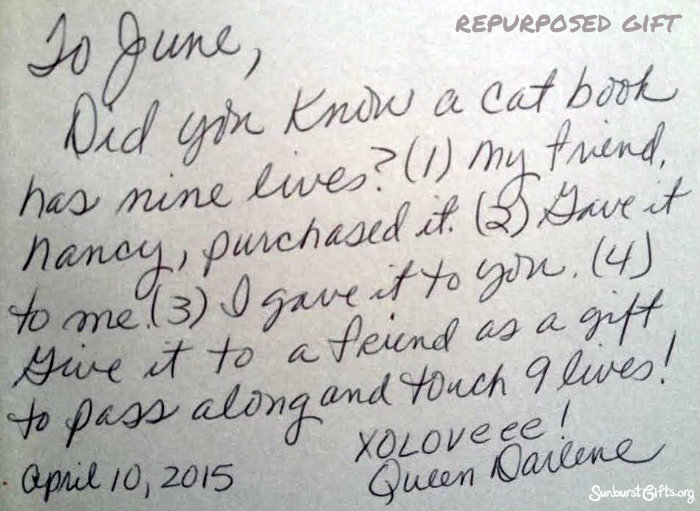 REPURPOSED GIFT
To June,
Did you know a cat book
has nine lives? (1) My friend,
Nancy, purchased it. (2) Gave it
to me. (3) I gave it to you. (4)
Give it to a friend as a gift
to pass along and touch 9 lives!
XOLOVEeee!
April 10, 2015
Queen Darlene
SunburstGifts.org